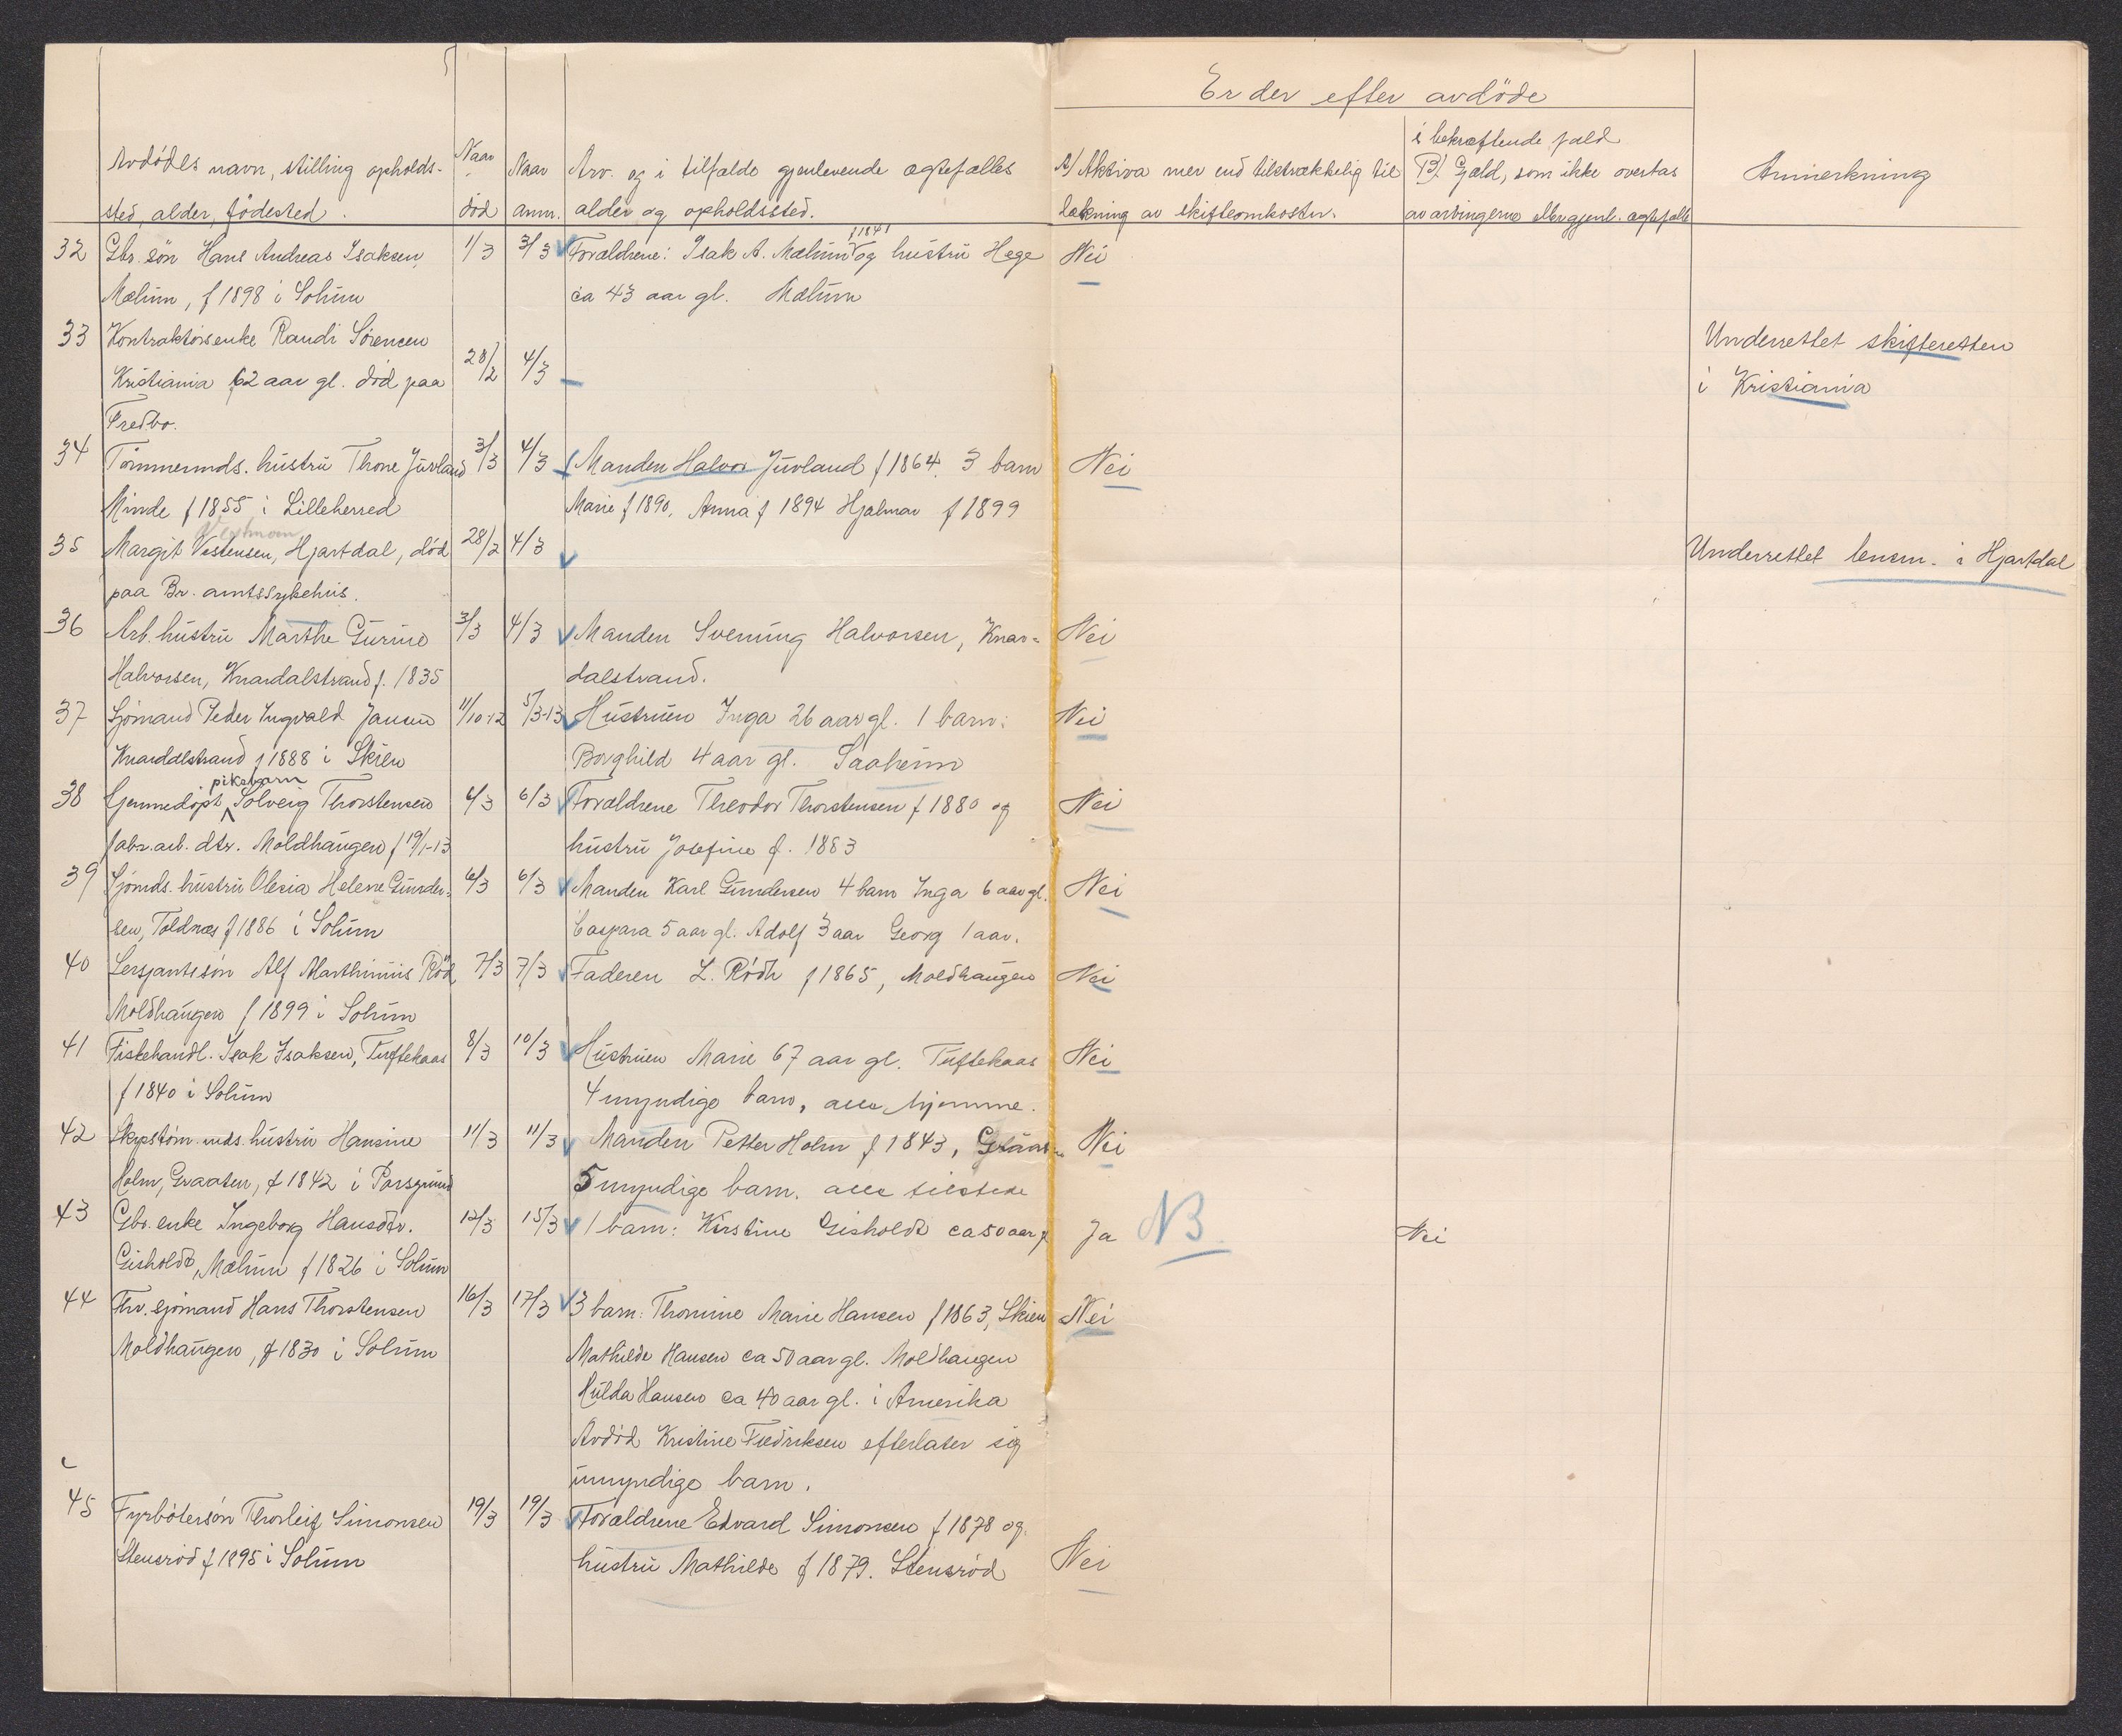 Er der efter avdöde
Avdödes navn, stilling opholds-
sted, alder, födested.
Naar
död
Naar
anm.
Arv. og i tilfælde gjenlevende ægtefælles
alder og opholdssted.
A/ Aktiva mer end tilstrækkelig til
dækning av skifteomkostn.
i bekræftende fald
B/. Gjæld, som ikke overtas
av arvingerne eller gjenl. ægtefælle
Anmerkning
32 Gbr. sön Hans Andreas Isaksen 1/3 3/3 Forældrene: Isak A. Mælum f 1841 og hustru Hege Nei
Mælum, f 1898 i Solum ca 43 aar gl. Mælum
33 Kontraktörsenke Randi Sörensen 28/2 4/3 Underrettet skifteretten
Kristiania 62 aar gl. död paa i Kristiania
Fredbo.
34 Tömmermds. hustru Thone Juvland 3/3 4/3 Manden Halvor Juvland f 1864. 3 barn Nei
Minde f 1855 i Lilleherred Marie f 1890, Anna f 1894 Hjalmar f 1899
35 Margit Vestensen, Hjartdal, död 28/2 4/3 Underrettet lensm. i Hjartdal
paa Br. amtssykehus.
36 Arb. hustru Marthe Gurine 3/3 4/3 Manden Svenung Halvorsen, Knar= Nei
Halvorsen, Knardalstrand f. 1835 dalstrand.
37 Sjömand Peder Ingvald Jansen 11/10-12 5/3-13 Hustruen Inga 26 aar gl. 1 barn: Nei
Knardalstrand f 1888 i Skien Borghild 4 aar gl. Saaheim
38 Hjemmedöpt pikebarn Solveig Thorstensen 6/3 6/3 Forældrene Theodor Thorstensen f 1880 og Nei
fabr. arb. dtr. Moldhaugen f 19/1-13 hustru Josefine f. 1883
39 Sjömds. hustru Olesia Helene Gunder- 6/3 6/3 Manden Karl Gundersen 4 barn Inga 6 aar gl. Nei
sen, Toldnæs f 1886 i Solum Caspara 5 aar gl. Adolf 3 aar Georg 1 aar.
40 Sersjantsön Alf Marthinius Röd 7/3 7/3 Faderen L. Rödh f 1865, Moldhaugen Nei
Moldhaugen f 1899 i Solum
41 Fiskehandl. Isak Isaksen, Tuftekaas 8/3 10/3 Hustruen Marie 67 aar gl. Tuftekaas Nei
f 1840 i Solum 4 myndige barn, alle hjemme.
42 Skipstöm. mds. hustru Hansine 11/3 11/3 Manden Petter Holm f 1843, Nei
Holm, Graaten, f 1842 i Porsgrund 5 myndige barn. alle tilstede
43 Gbr. enke Ingeborg Hansdtr. 12/3 15/3 1 barn: Kirstine Gisholdt ca 50 aar gl Ja NB Nei
Gisholdt, Mælum f 1826 i Solum
44 Fhv. sjömand Hans Thorstensen 16/3 17/3 3 barn: Thomine Marie Hansen f 1863, Skien Nei
Moldhaugen, f 1830 i Solum Mathilde Hansen ca 50 aar gl. Moldhaugen
Hulda Hansen ca 40 aar gl. i Amerika
Avdöd Kristine Fredriksen efterlater sig
umyndige barn.
45 Fyrbötersön Thorleif Simonsen 19/3 19/3 Forældrene Edvard Simonsen f 1878 og
Stensröd f 1895 i Solum hustru Mathilde f 1879. Stensröd Nei